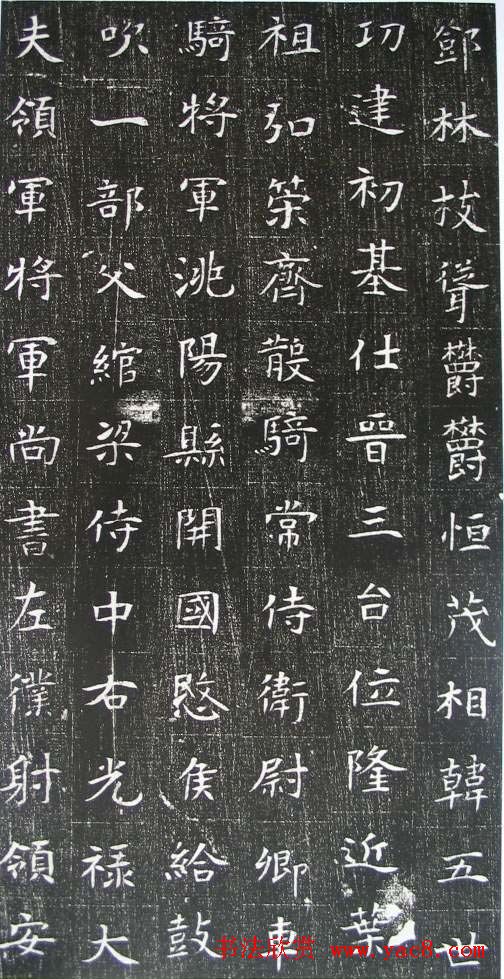 鄧林枝聳欝欝恒茂相韓五世
功建初基仕晉三台位隆近葉
祖弘策齊散騎常侍衛尉卿車
騎將軍洮陽縣開國愍侯給鼓
吹一部父綰梁侍中右光祿大
夫領軍將軍尚書左僕射領安
书法欣赏 www.yac8.com